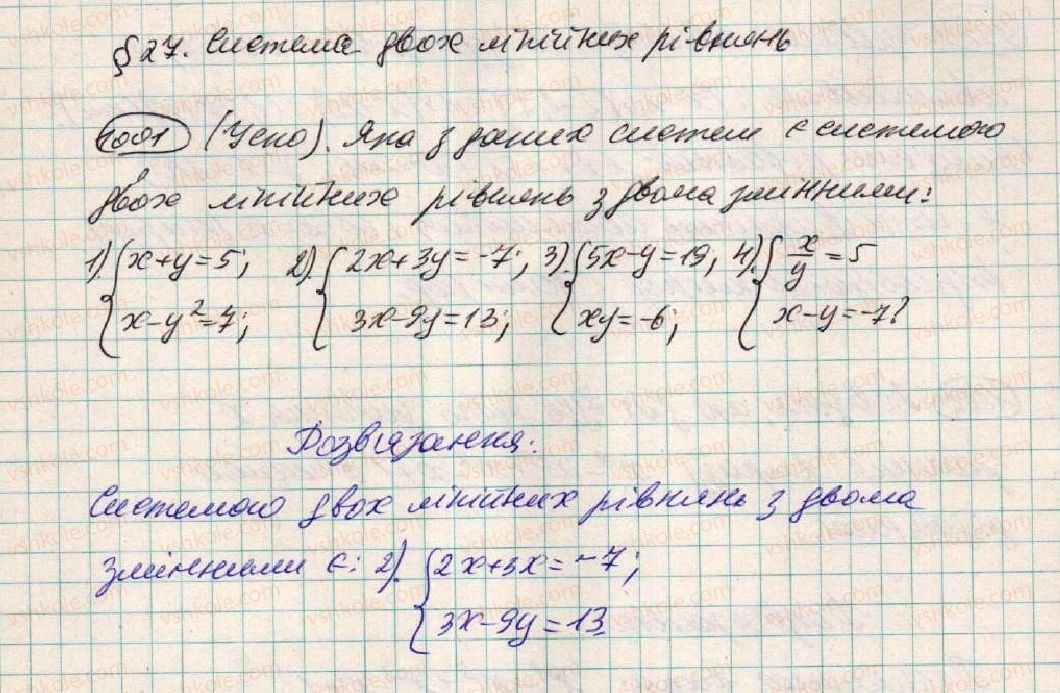 §27. Система двох лінійних рівнянь
1001 (Усно). Яка з даних систем є системою
двох лінійних рівнянь з двома змінними:
1). { x+y=5; 2). { 2x+3y=-7; 3). { 5x-y=19, 4). { x/y=5
x-y²=7; 3x-9y=13; xy=-6; x-y=-7?
Розв'язання:
Системою двох лінійних рівнянь з двома
змінними є: 2). { 2x+3x=-7;
3x-9y=13